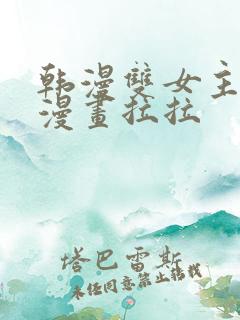 韩漫雙女主
漫畫拉拉
塔巴雷斯
未经同意禁止转载